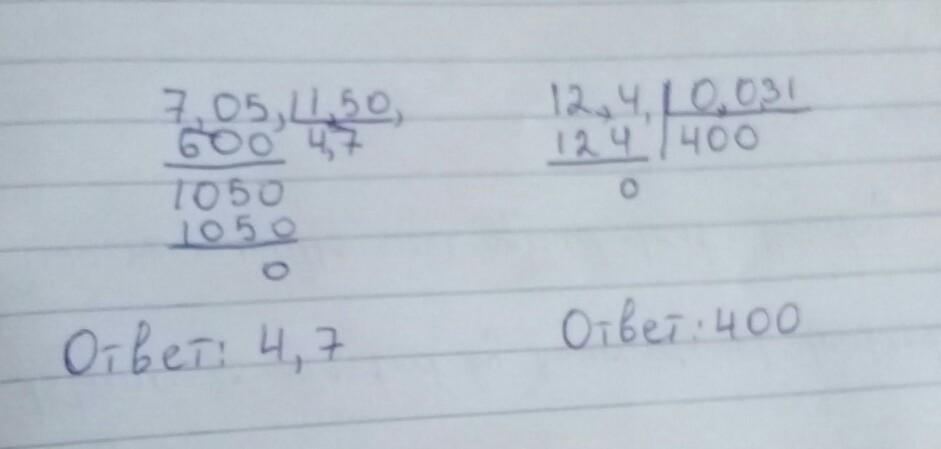 7,05, 1,50,
600 4,7
1050
1050
0
Ответ: 4,7
12,4, 0,031
124 400
0
Ответ: 400